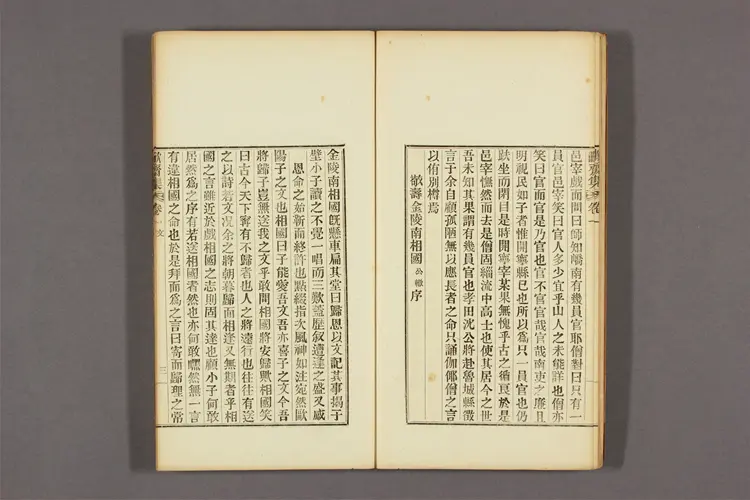 邑宰戲而問曰師知嶠南有幾員官耶僧對曰只有一
員官邑宰笑曰官人多少宜乎山人之未能詳也僧亦
笑曰官而官是乃官也官不官官哉官哉南吏之廉且
明視民如子者惟開寧縣已也所以爲只一員官也仍
趺坐而閉目是時開寧宰某果無愧乎古之循良於是
邑宰憮然而去是僧固緇流中高士也使其居今之世
吾未知其果謂有幾員官也孝田沈公將赴魯城縣徵
言于余自顧孤陋無以應長者之命只誦伽倻僧之言
以侑別樽焉
敬壽金陵南相國公轍序
金陵南相國旣懸車扁其堂曰歸恩以文記其事揭于
壁小子讀之不覺一唱而三歎蓋歷叙遭逢之盛又感
恩命之始靳而終許也點綴指次風神如注宛然歐
陽子之文也相國曰子能愛吾文吾亦喜子之文今吾
將歸子豈無送我之文乎敢問相國將安歸歟相國笑
曰古今天下寧有不歸者也人之將遠行也往往有送
之以詩若文况余之將朝暮歸而相逢又無期者乎相
國之言雖近於戲相國之志則固其達也顧小子何敢
居然爲之序有若送相國者然也亦何敢嘿然無一言
有違相國之命也於是拜而爲之言曰寄而歸理之常
卷一
文
三